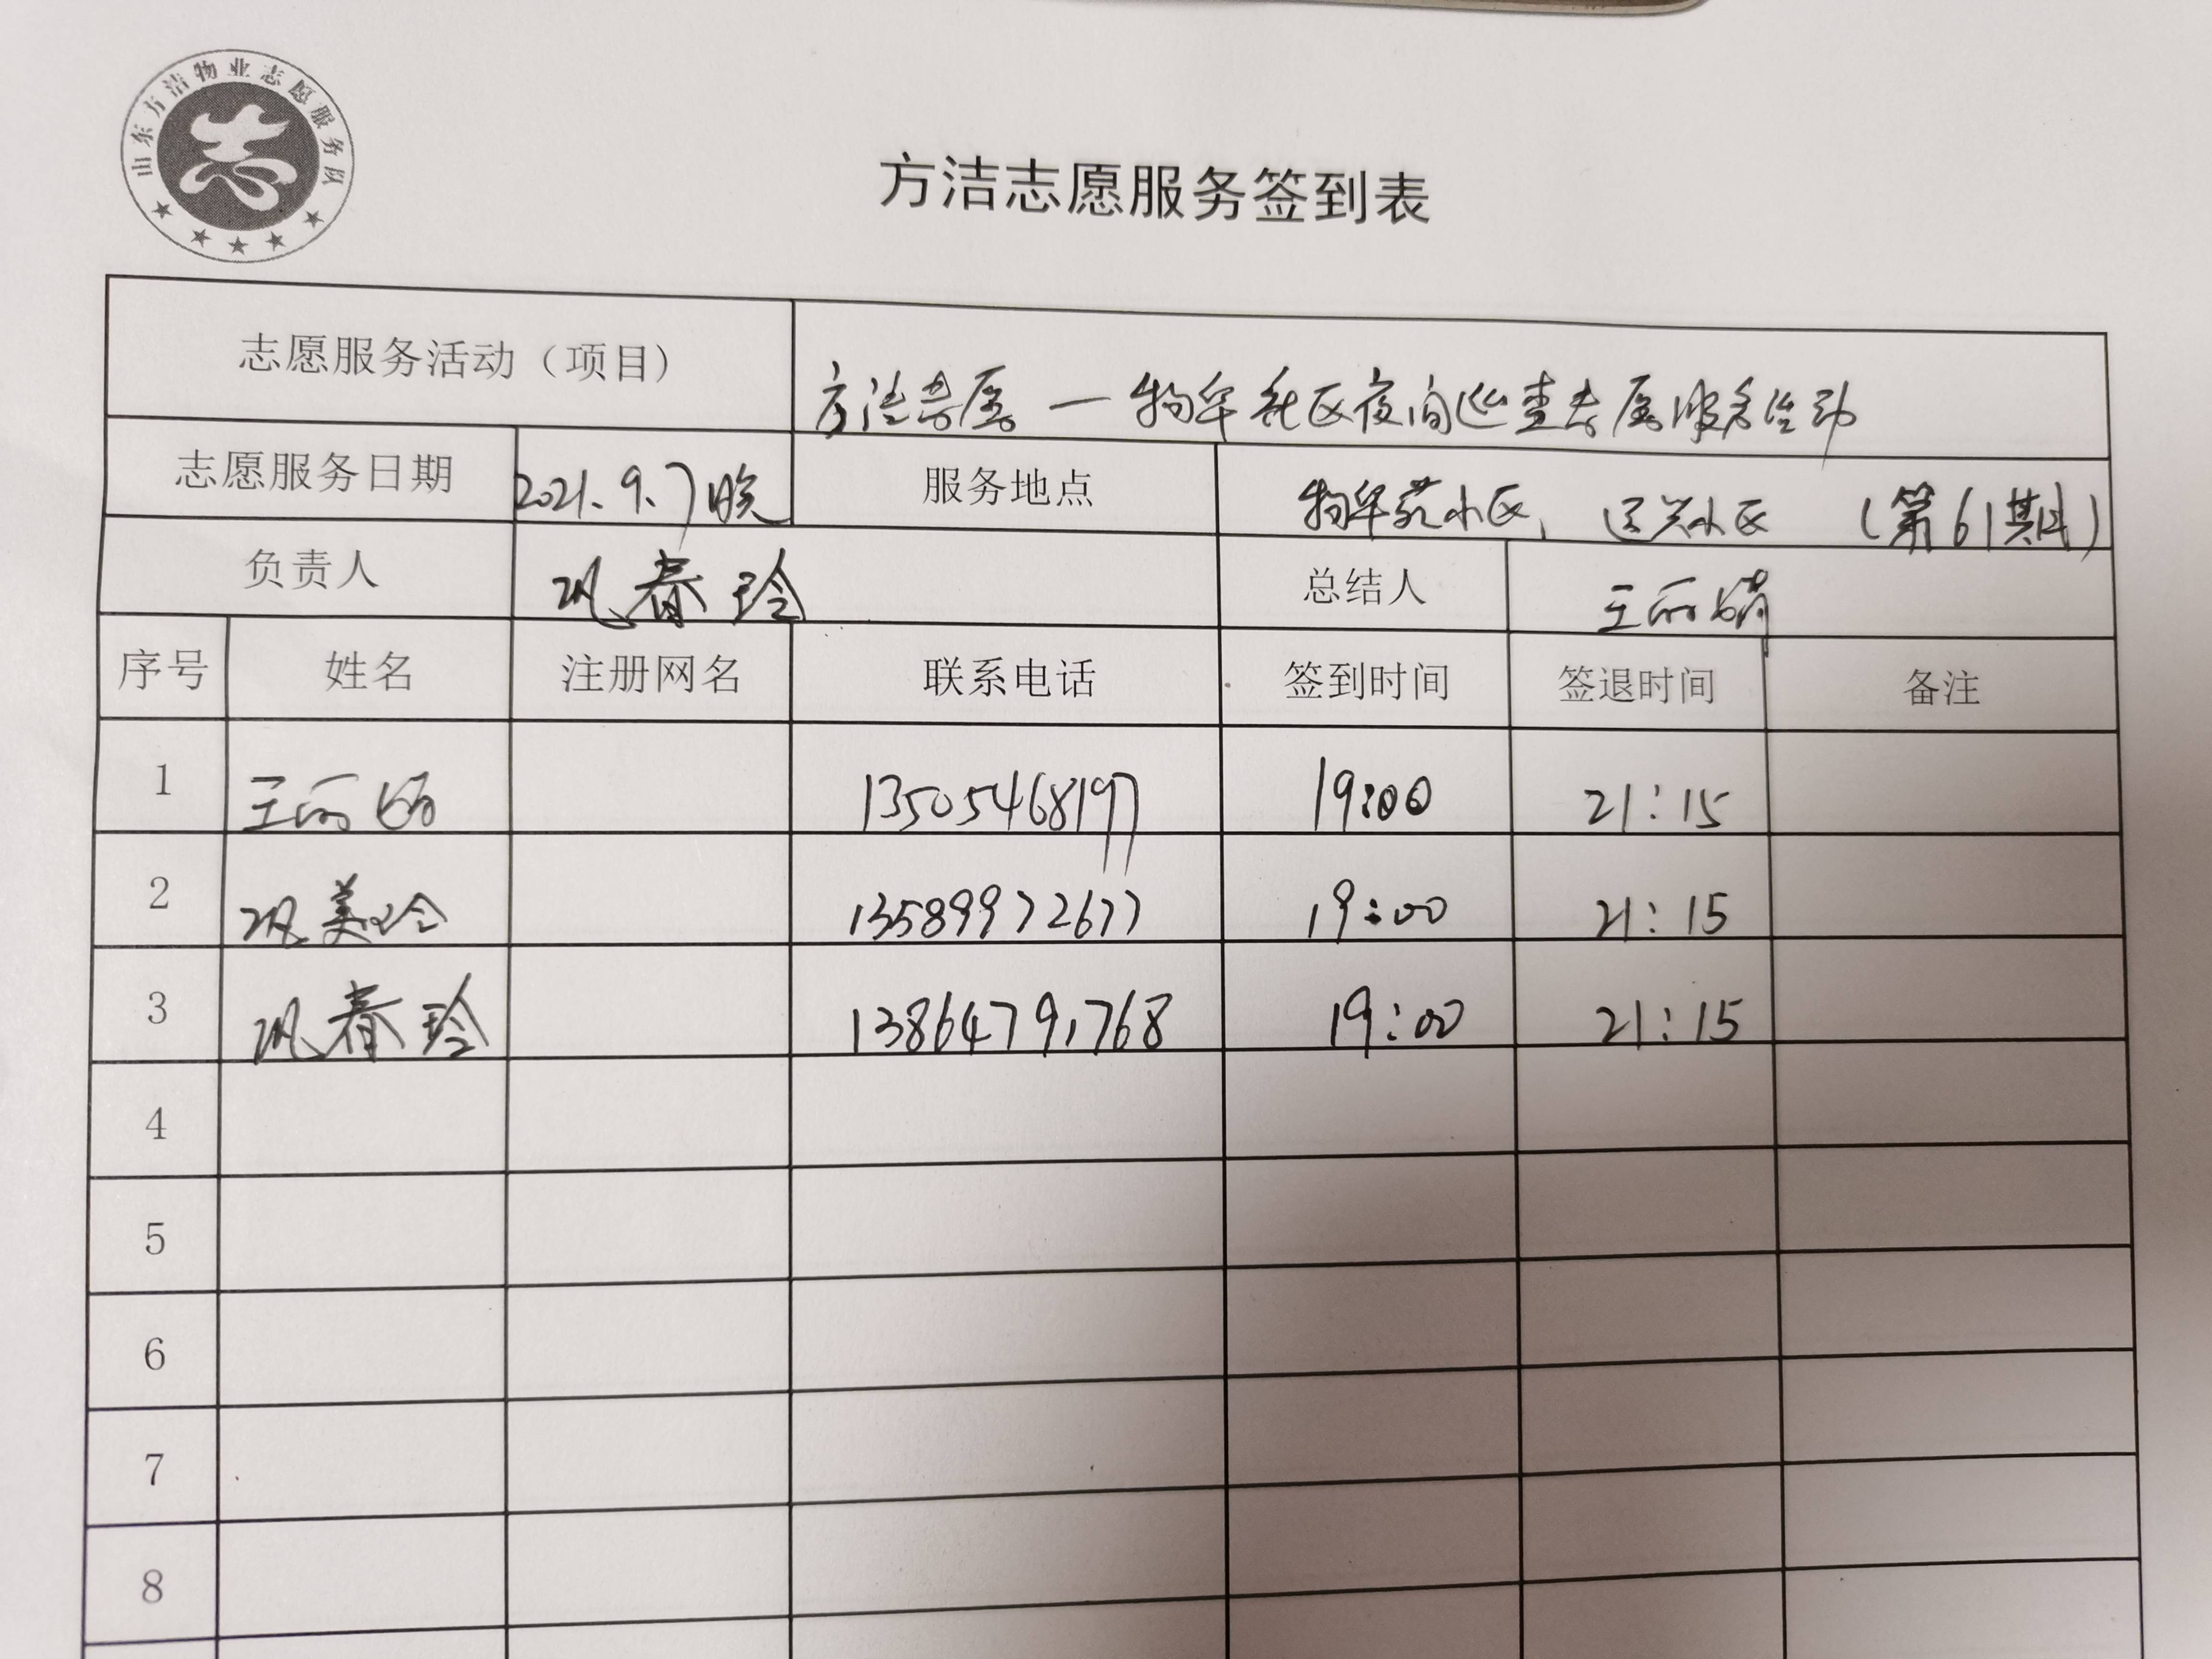 山东方洁物业志愿服务队
方洁志愿服务签到表
志愿服务活动（项目） 方洁志愿—物华社区夜间巡查志愿服务活动
志愿服务日期 2021.9.7晚 服务地点 物华苑小区、运兴小区 （第61期）
负责人 巩春玲 总结人 王丽娟
序号 姓名 注册网名 联系电话 签到时间 签退时间 备注
1 王丽娟 13505468197 19:00 21:15
2 巩美玲 13589972677 19:00 21:15
3 巩春玲 13864791768 19:00 21:15
4
5
6
7
8